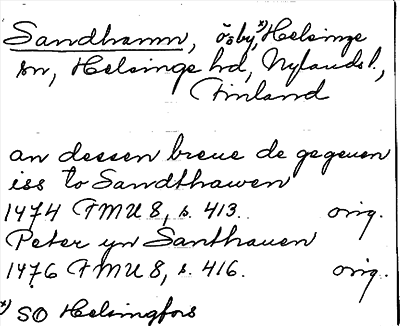 Sandhamn, ösby,*) Helsinge
sn, Helsinge hd, Nylands l.,
Finland
an dessen breue de gegeuen
iss to Sandthawen
1474 FMU 8, s. 413. orig.
Peter yn Santhauen
1476 FMU 8, s. 416. orig.
*) SO Helsingfors